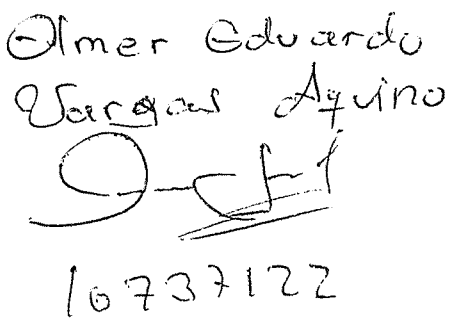 Olmer Eduardo
Vargas Aquino
10737122